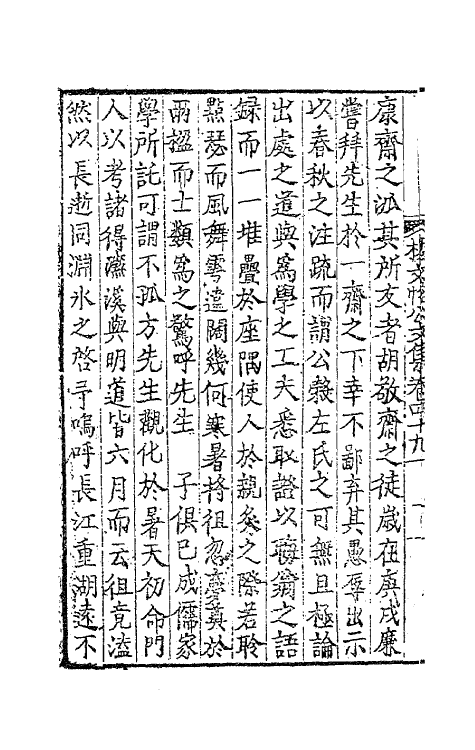 康齋之派其所友者胡敬齋之徒歲在庚戌廉
嘗拜先生於一齋之下幸不鄙弃其愚辱出示
以春秋之注疏而謂公穀左氏之可無且極論
出處之道與為學之工夫悉取證以晦翁之語
録而一一堆疊於座隅使人於親炙之際若聆
點瑟而風舞雩違闊幾何寒暑將徂忽奠於
兩楹而士類為之驚呼先生 子俱已成儒家
學所託可謂不孤方先生觀化於暑天初命門
人以考諸得濂溪與明道皆六月而云徂竟溘
然以長逝同淵氷之啓予嗚呼長江重湖遠不
文集卷四十九